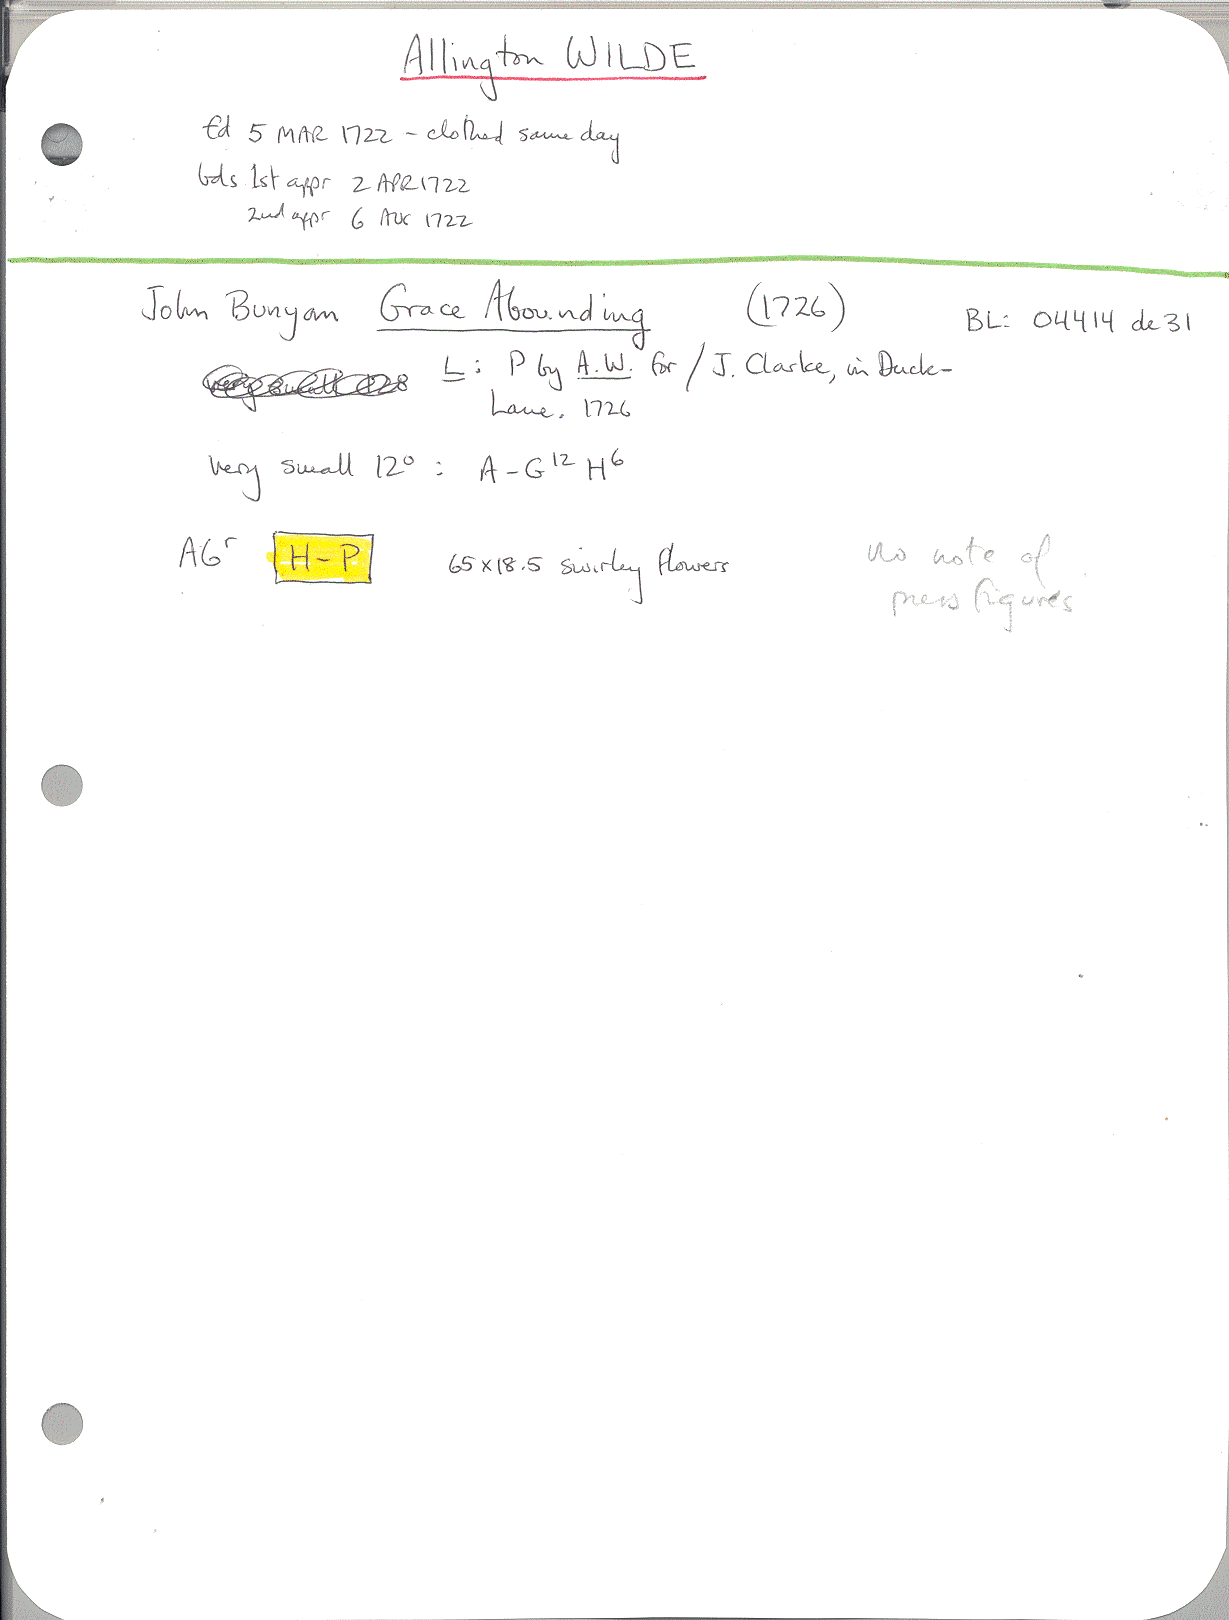 Allington WILDE
fd 5 MAR 1722 - clothed same day
bds 1st appr 2 APR 1722
2nd appr 6 AUG 1722
John Bunyan Grace Abounding (1726) BL: 04414 de 31
L: P by A.W. for / J. Clarke, in Duck-
Lane. 1726
very small 12º : A-G¹² H⁶
A6ʳ H-P 65x18.5 swirley flowers
no note of
press figures